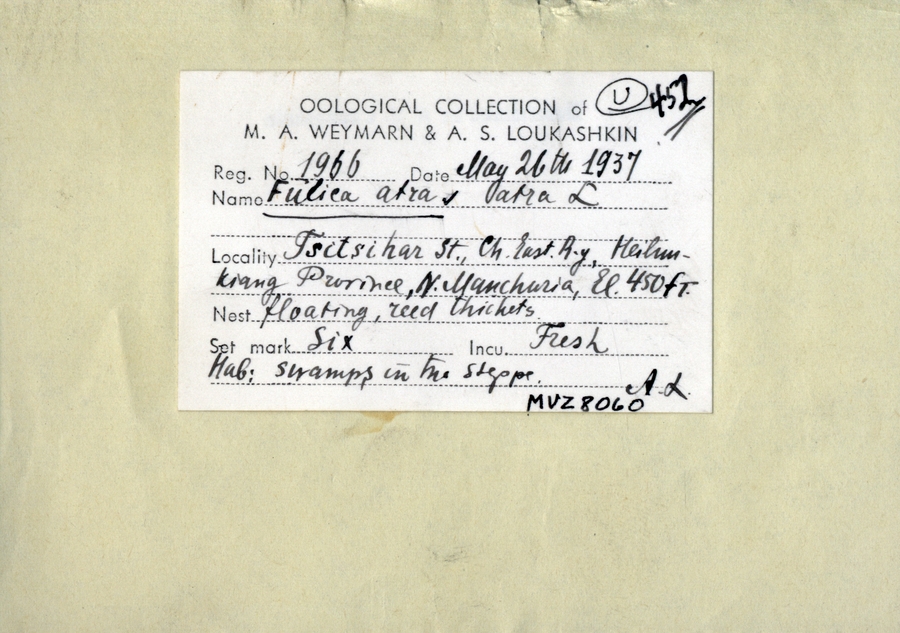 OOLOGICAL COLLECTION of U 452
M. A. WEYMARN & A. S. LOUKASHKIN
Reg. No. 1966 Date May 26th 1937
Name Fulica atra atra L
Locality Tsitsihar St., Ch. East. R-y, Heilun-
kiang Province, N. Manchuria, El. 450 fT.
Nest floating, reed thickets.
Set mark Six Incu. Fresh
Hab: swamps in the steppe.
A. L.
MVZ 8060